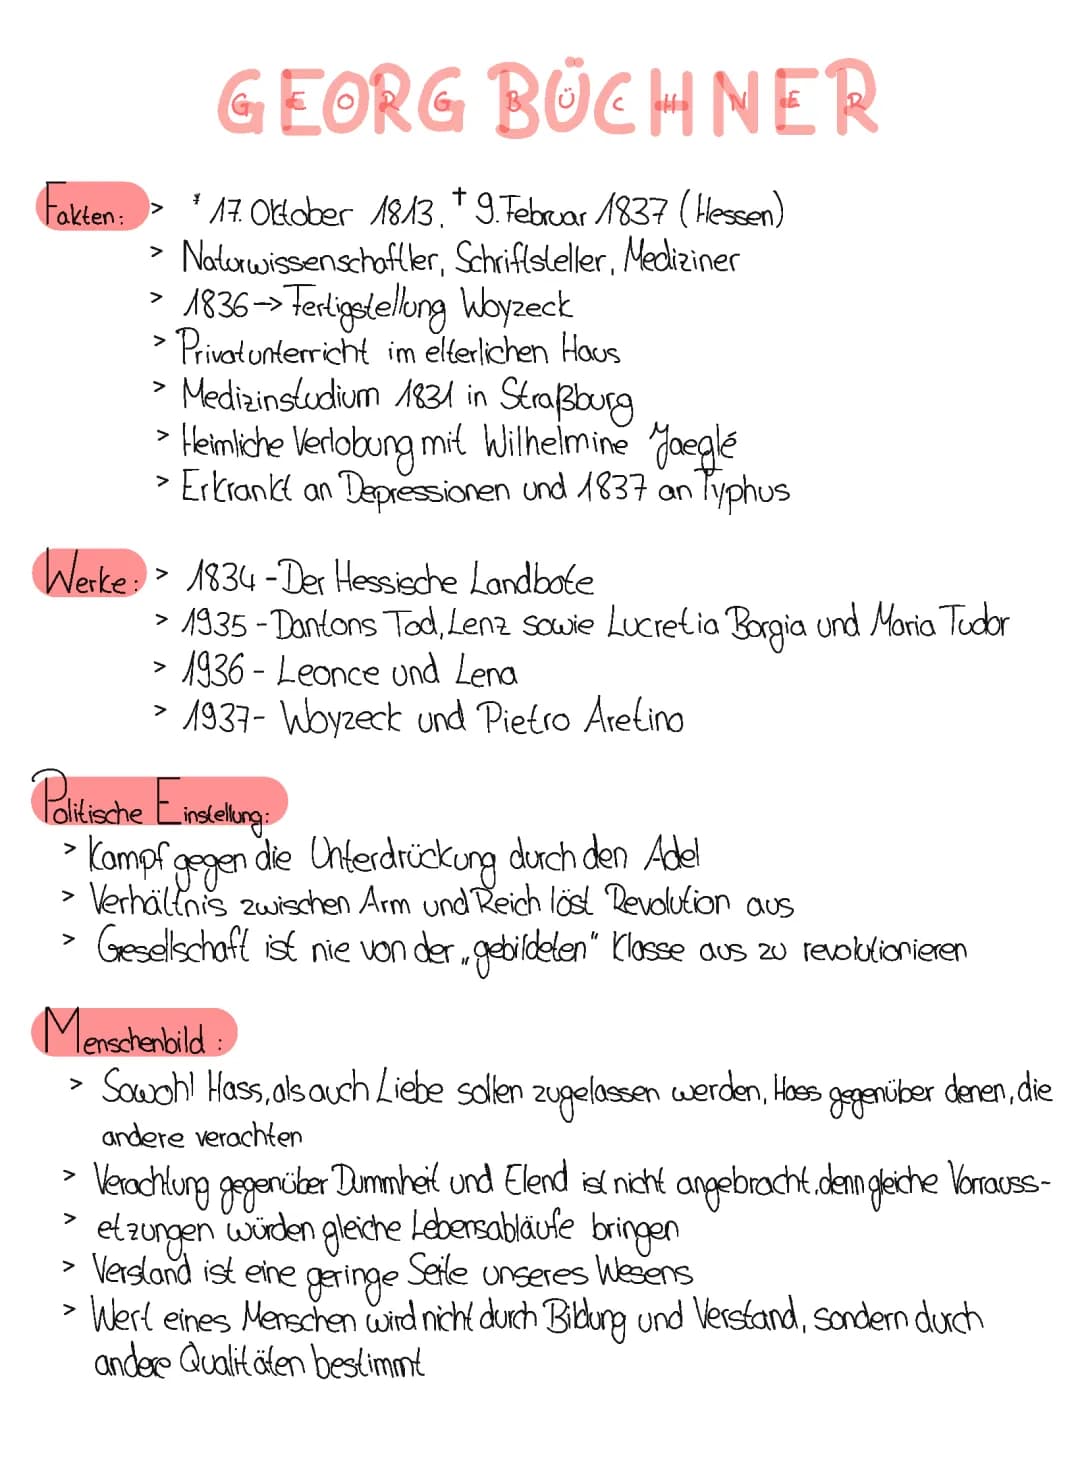 GEORG BÜCHNER
Fakten: > * 17. Oktober 1813, † 9. Februar 1837 (Hessen)
> Naturwissenschaftler, Schriftsteller, Mediziner
> 1836 → Fertigstellung Woyzeck
> Privatunterricht im elterlichen Haus
> Medizinstudium 1831 in Straßburg
> Heimliche Verlobung mit Wilhelmine Jaeglé
> Erkrankt an Depressionen und 1837 an Typhus
Werke: > 1834 - Der Hessische Landbote
> 1935 - Dantons Tod, Lenz sowie Lucretia Borgia und Maria Tudor
> 1936 - Leonce und Lena
> 1937 - Woyzeck und Pietro Aretino
Politische Einstellung:
> Kampf gegen die Unterdrückung durch den Adel
> Verhältnis zwischen Arm und Reich löst Revolution aus
> Gesellschaft ist nie von der „gebildeten" Klasse aus zu revolutionieren
Menschenbild:
> Sowohl Hass, als auch Liebe sollen zugelassen werden, Hass gegenüber denen, die
andere verachten
> Verachtung gegenüber Dummheit und Elend ist nicht angebracht, denn gleiche Vorrauss-
> etzungen würden gleiche Lebensabläufe bringen
> Verstand ist eine geringe Seite unseres Wesens
> Wert eines Menschen wird nicht durch Bildung und Verstand, sondern durch
andere Qualitäten bestimmt